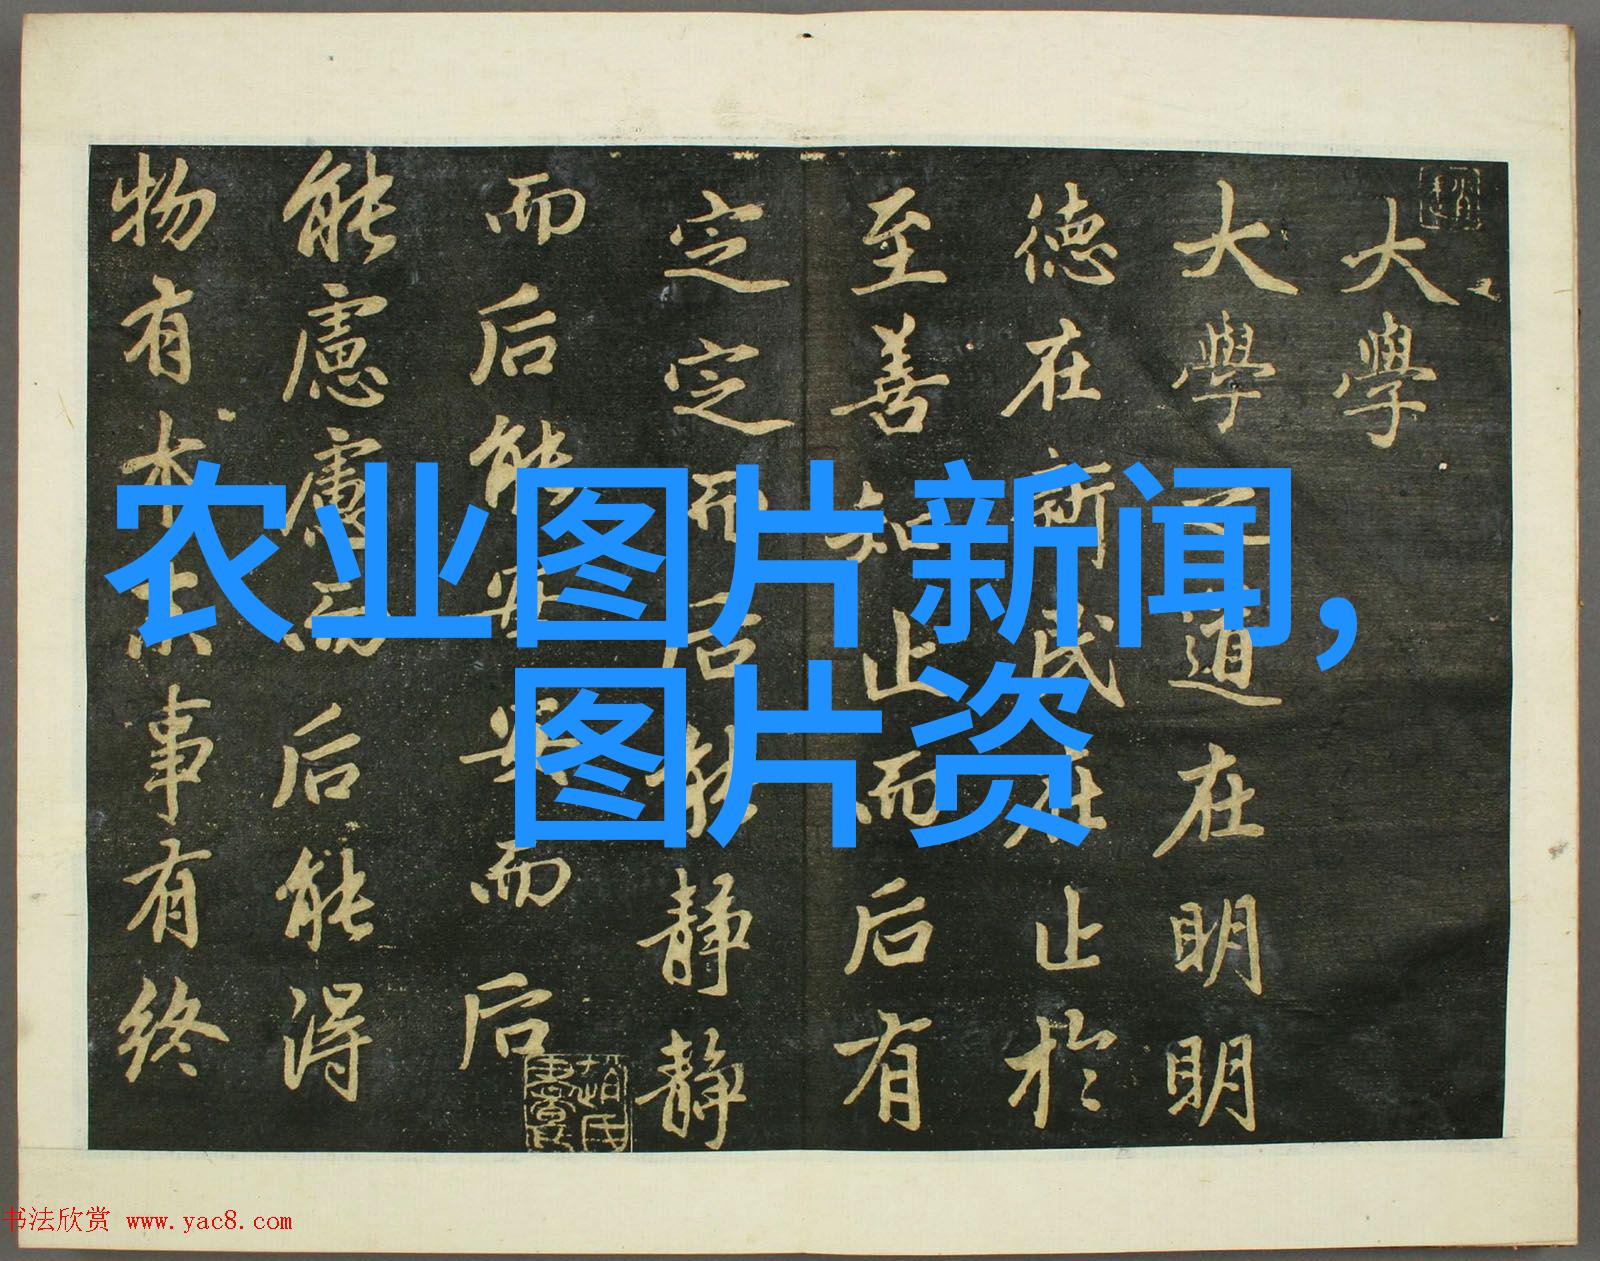 农业图片新闻,
图片资
大學
大學之道在明明
德在新民在止於
至善知止而后有
定定而后能靜靜
而后能安安而后
能慮慮而后能得
物有本末事有終
书法欣赏 www.yac8.com